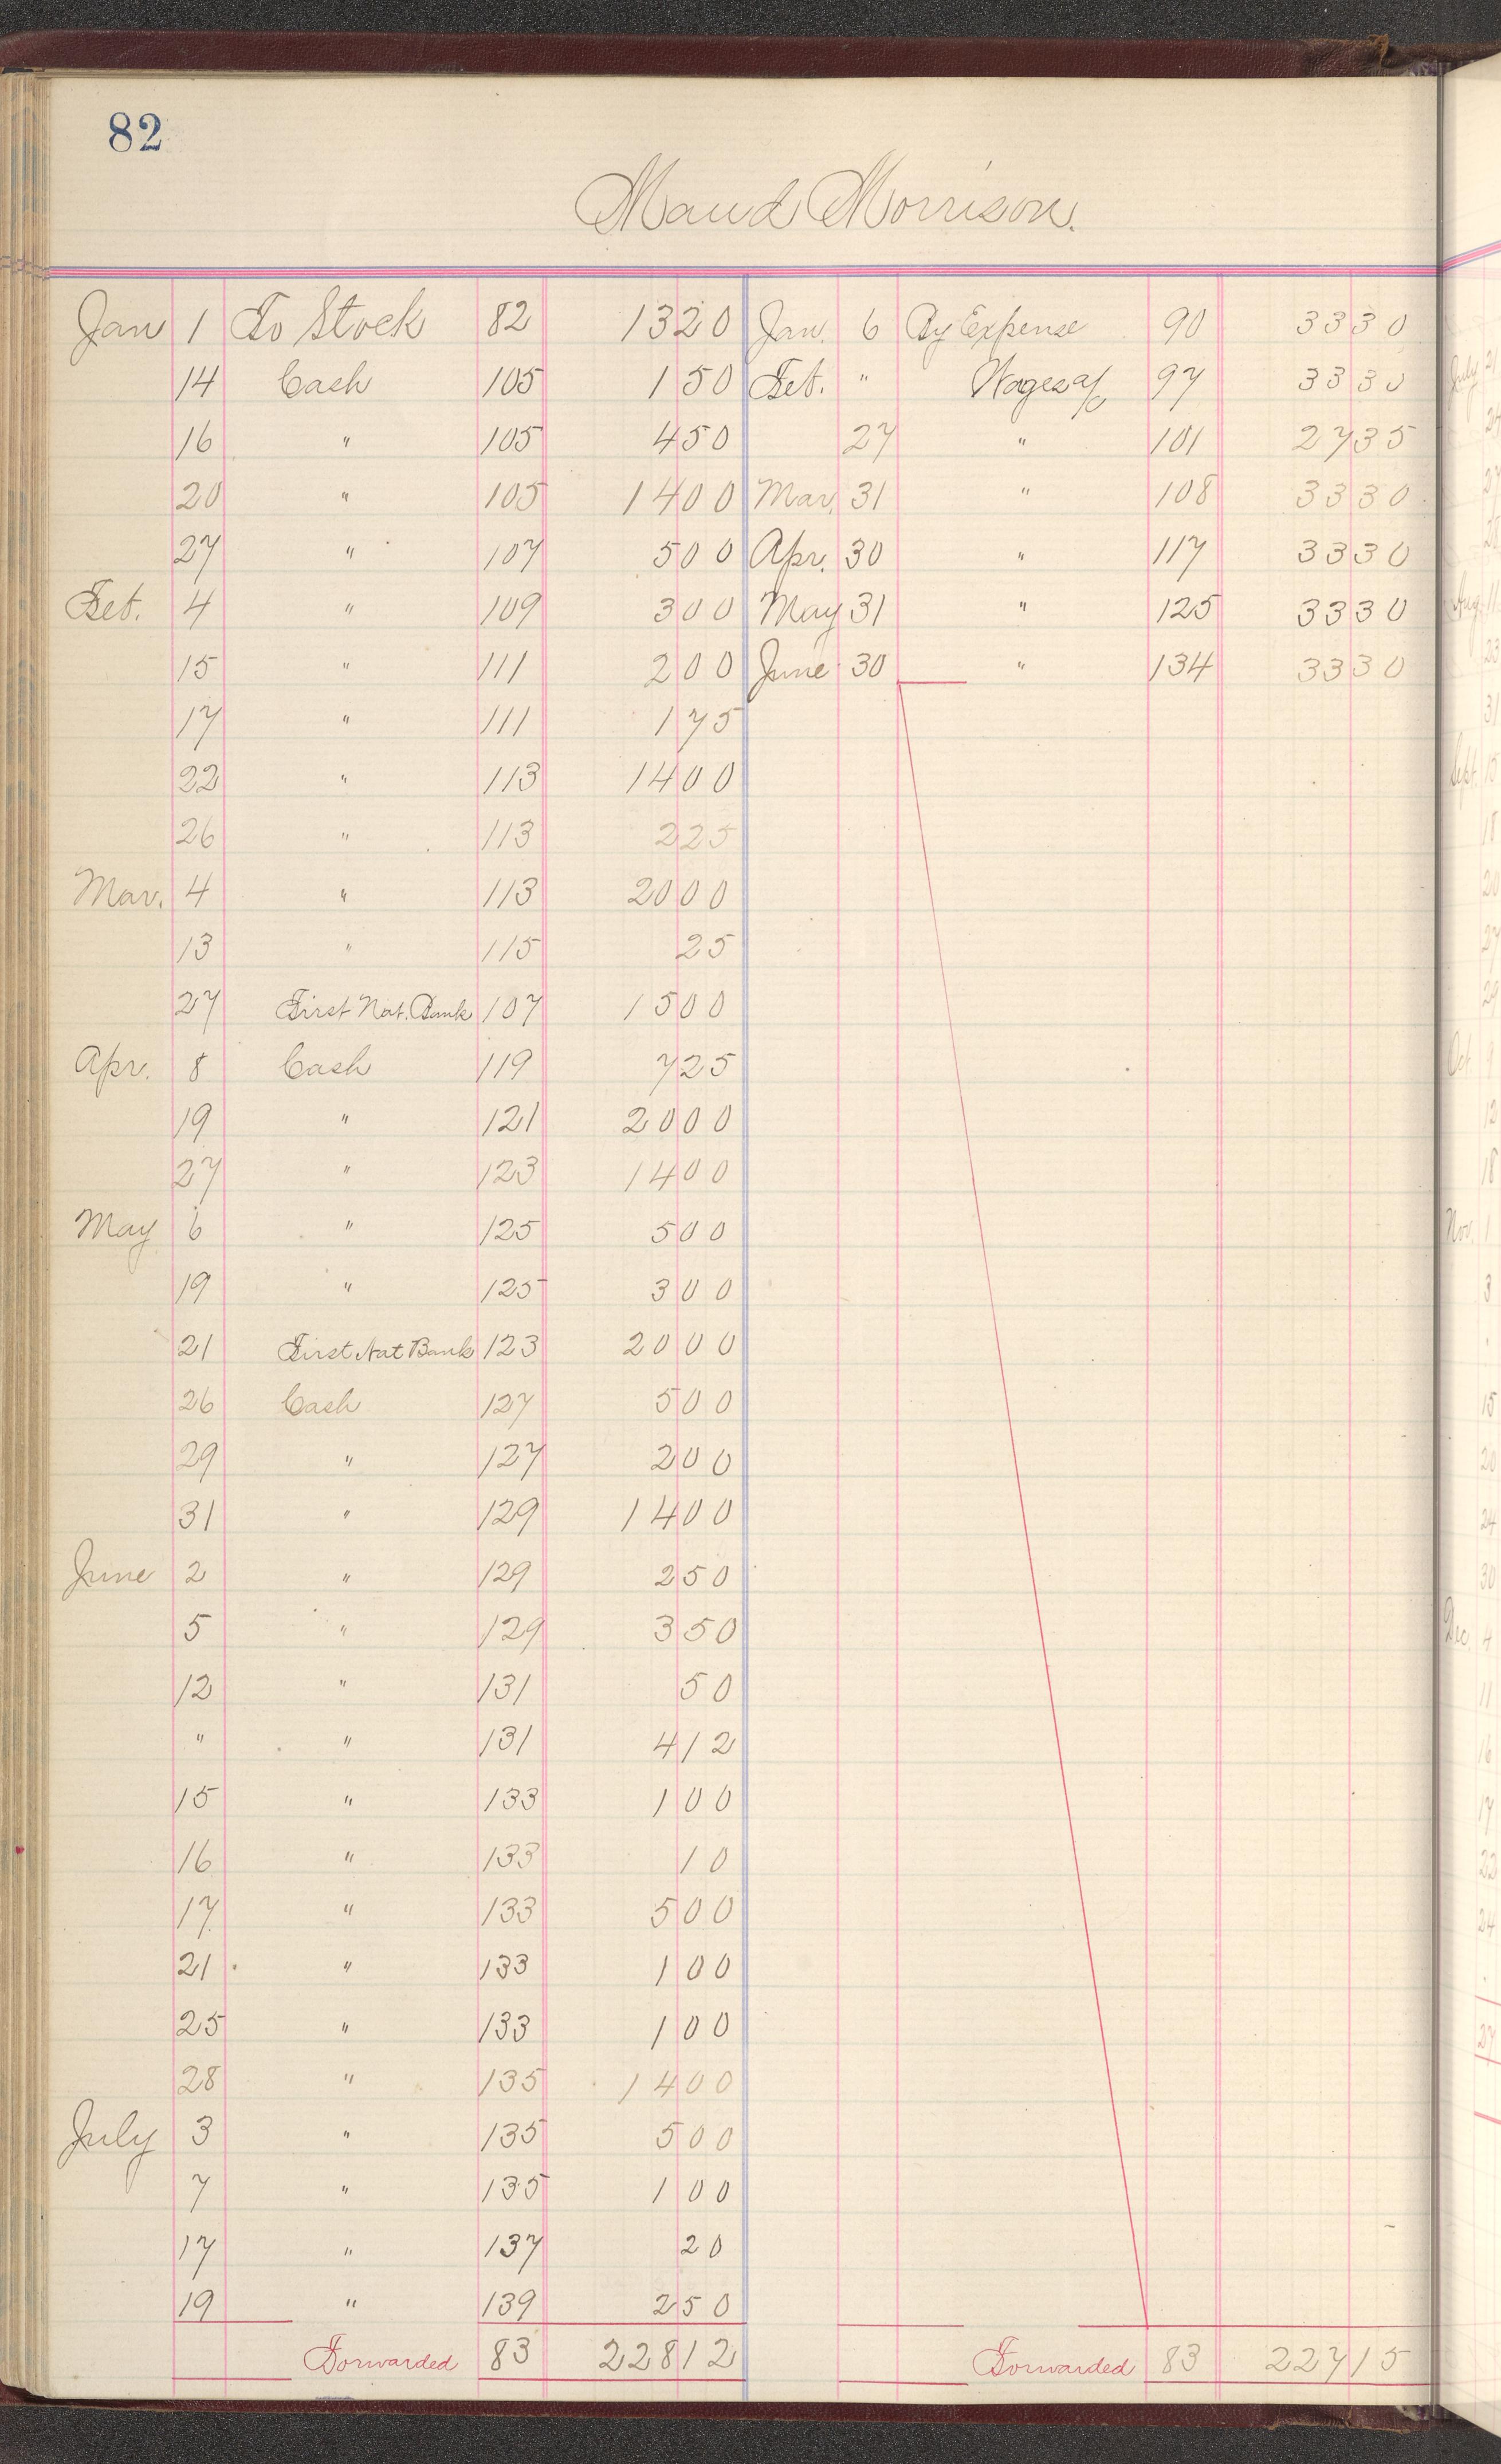 82
Maud Morrison.
Jan 1 To Stock 82 1320 Jan. 6 By Expense 90 3330
14 Cash 105 150 Feb. " Wages a/c 97 3330
16 " 105 450 27 " 101 2735
20 " 105 1400 Mar. 31 " 108 3330
27 " 107 500 Apr. 30 " 117 3330
Feb. 4 " 109 300 May 31 " 125 3330
15 " 111 200 June 30 " 134 3330
17 " 111 175
22 " 113 1400
26 " 113 225
Mar. 4 " 113 2000
13 " 115 25
27 First Nat. Bank 107 1500
Apr. 8 Cash 119 725
19 " 121 2000
27 " 123 1400
May 6 " 125 500
19 " 125 300
21 First Nat Bank 123 2000
26 Cash 127 500
29 " 127 200
31 " 129 1400
June 2 " 129 250
5 " 129 350
12 " 131 50
" " 131 412
15 " 133 100
16 " 133 10
17 " 133 500
21 " 133 100
25 " 133 100
28 " 135 1400
July 3 " 135 500
7 " 135 100
17 " 137 20
19 " 139 250
Forwarded 83 22812 Forwarded 83 22715